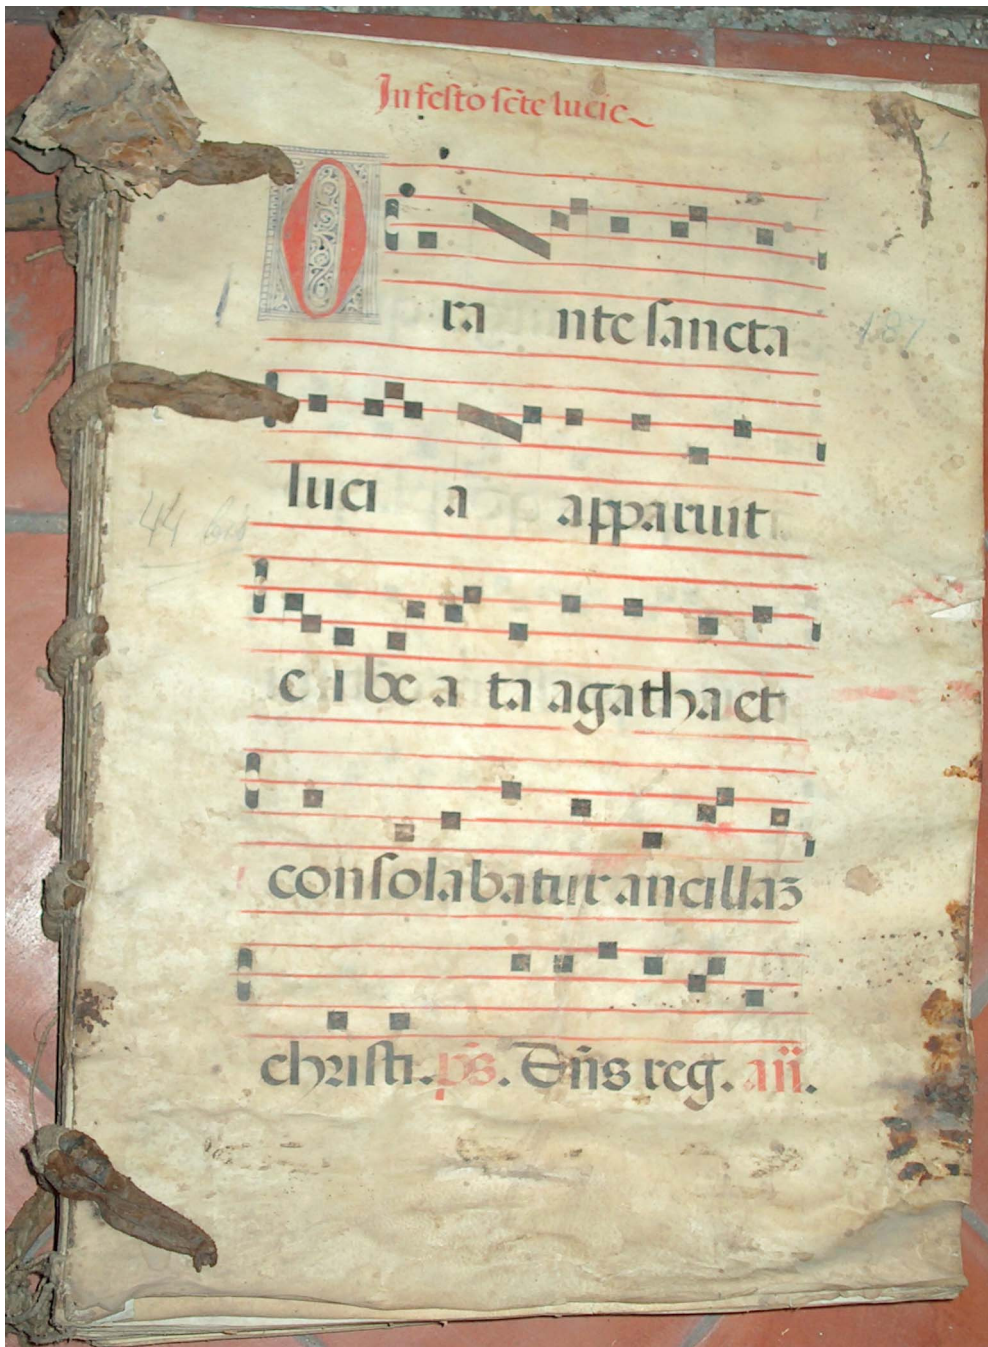 In festo scte lucie
Ora nte sancta
luci a apparuit
e i be a ta agatha et
consolabatur ancillaʒ
christi. ps. Dns reg. aii.
187
44 bis